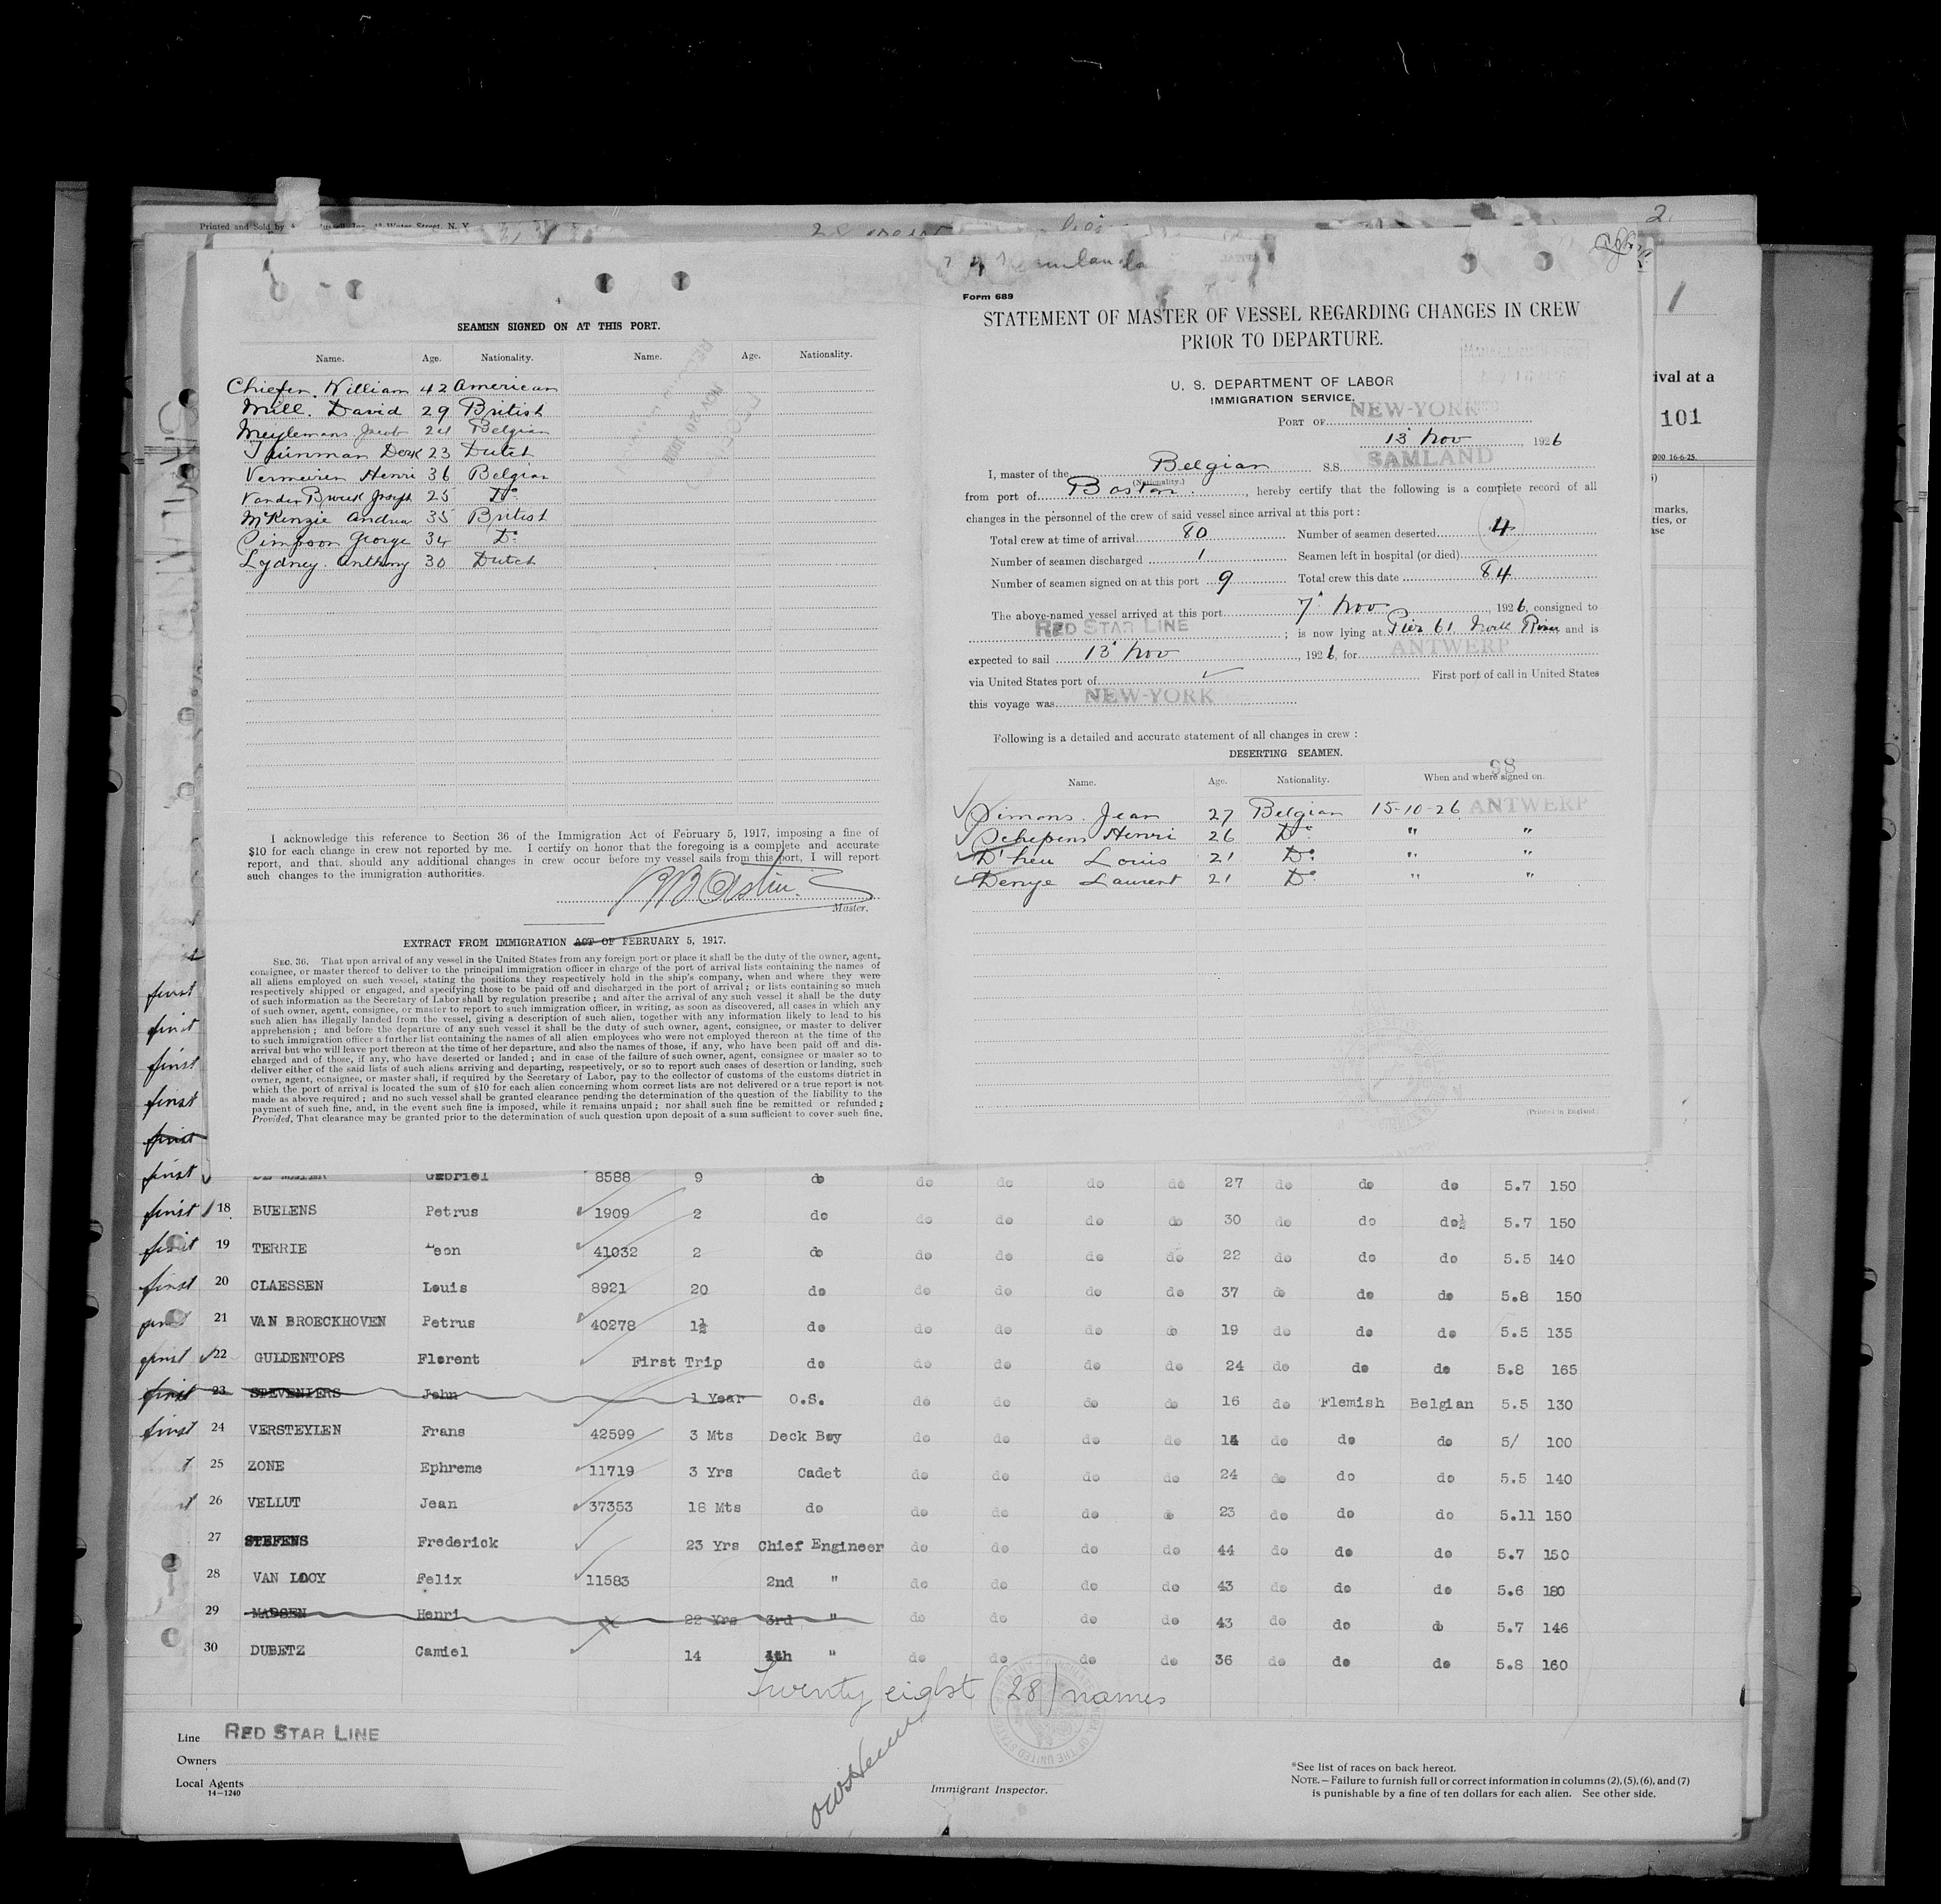 Printed and Sold by
Water Street, N. Y.
2
SEAMEN SIGNED ON AT THIS PORT.
Name. Age. Nationality. Name. Age. Nationality.
Chiefer. William 42 American
Mill. David 29 British
Meylemans Jacob 24 Belgian
Tuinman Derk 23 Dutch
Vermeiren Henri 36 Belgian
Vanden Broeck Joseph 25 Do
McKenzie Andrew 35 British
Simpson George 34 Do
Lydney. Anthony 30 Dutch
I acknowledge this reference to Section 36 of the Immigration Act of February 5, 1917, imposing a fine of
$10 for each change in crew not reported by me. I certify on honor that the foregoing is a complete and accurate
report, and that should any additional changes in crew occur before my vessel sails from this port, I will report
such changes to the immigration authorities.
Master.
EXTRACT FROM IMMIGRATION ACT OF FEBRUARY 5, 1917.
SEC. 36. That upon arrival of any vessel in the United States from any foreign port or place it shall be the duty of the owner, agent,
consignee, or master thereof to deliver to the principal immigration officer in charge of the port of arrival lists containing the names of
all aliens employed on such vessel, stating the positions they respectively hold in the ship's company, when and where they were
respectively shipped or engaged, and specifying those to be paid off and discharged in the port of arrival; or lists containing so much
of such information as the Secretary of Labor shall by regulation prescribe; and after the arrival of any such vessel it shall be the duty
of such owner, agent, consignee, or master to report to such immigration officer, in writing, as soon as discovered, all cases in which any
such alien has illegally landed from the vessel, giving a description of such alien, together with any information likely to lead to his
apprehension; and before the departure of any such vessel it shall be the duty of such owner, agent, consignee, or master to deliver
to such immigration officer a further list containing the names of all alien employees who were not employed thereon at the time of the
arrival but who will leave port thereon at the time of her departure, and also the names of those, if any, who have been paid off and dis-
charged and of those, if any, who have deserted or landed; and in case of the failure of such owner, agent, consignee or master so to
deliver either of the said lists of such aliens arriving and departing, respectively, or so to report such cases of desertion or landing, such
owner, agent, consignee, or master shall, if required by the Secretary of Labor, pay to the collector of customs of the customs district in
which the port of arrival is located the sum of $10 for each alien concerning whom correct lists are not delivered or a true report is not
made as above required; and no such vessel shall be granted clearance pending the determination of the question of the liability to the
payment of such fine, and, in the event such fine is imposed, while it remains unpaid; nor shall such fine be remitted or refunded;
Provided, That clearance may be granted prior to the determination of such question upon deposit of a sum sufficient to cover such fine.
Form 689
STATEMENT OF MASTER OF VESSEL REGARDING CHANGES IN CREW
PRIOR TO DEPARTURE.
U. S. DEPARTMENT OF LABOR
IMMIGRATION SERVICE.
PORT OF NEW-YORK
13 Nov, 1926
I, master of the Belgian S.S. SAMLAND
(Nationality.)
from port of Boston, hereby certify that the following is a complete record of all
changes in the personnel of the crew of said vessel since arrival at this port:
Total crew at time of arrival 80 Number of seamen deserted 4
Number of seamen discharged 1 Seamen left in hospital (or died)
Number of seamen signed on at this port 9 Total crew this date 84
The above-named vessel arrived at this port 7 Nov, 1926, consigned to
RED STAR LINE; is now lying at Pier 61 North River and is
expected to sail 13 Nov, 1926, for ANTWERP
via United States port of First port of call in United States
this voyage was NEW-YORK
Following is a detailed and accurate statement of all changes in crew:
DESERTING SEAMEN.
98
Name. Age. Nationality. When and where signed on.
Simons. Jean 27 Belgian 15-10-26 ANTWERP
Schepens Henri 26 Do " "
D'heu Louis 21 Do " "
Denye Laurent 21 Do " "
(Printed in England)
1
ival at a
101
000 16-6-25.
marks,
ties, or
ase
first
first
first
first
first
first Gabriel 8588 9 do do do do do 27 do do do 5.7 150
first 18 BUELENS Petrus 1909 2 do do do do do 30 do do do½ 5.7 150
first 19 TERRIE Leon 41032 2 do do do do do 22 do do do 5.5 140
first 20 CLAESSEN Louis 8921 20 do do do do do 37 do do do 5.8 150
first 21 VAN BROECKHOVEN Petrus 40278 1½ do do do do do 19 do do do 5.5 135
first 22 GULDENTOPS Florent First Trip do do do do do 24 do do do 5.8 165
first 23 STEVENIERS John 1 Year O.S. do do do do 16 do Flemish Belgian 5.5 130
first 24 VERSTEYLEN Frans 42599 3 Mts Deck Boy do do do do 14 do do do 5/ 100
25 ZONE Ephreme 11719 3 Yrs Cadet do do do do 24 do do do 5.5 140
26 VELLUT Jean 37353 18 Mts do do do do do 23 do do do 5.11 150
27 STEFENS Frederick 23 Yrs Chief Engineer do do do do 44 do do do 5.7 150
28 VAN LOOY Felix 11583 2nd " do do do do 43 do do do 5.6 180
29 MADSEN Henri 22 Yrs 3rd " do do do do 43 do do do 5.7 146
30 DUBETZ Camiel 14 4th " do do do do 36 do do do 5.8 160
Twenty eight (28) names
Line RED STAR LINE
Owners
Local Agents
14—1240
Immigrant Inspector.
*See list of races on back hereof.
NOTE.—Failure to furnish full or correct information in columns (2), (5), (6), and (7)
is punishable by a fine of ten dollars for each alien. See other side.